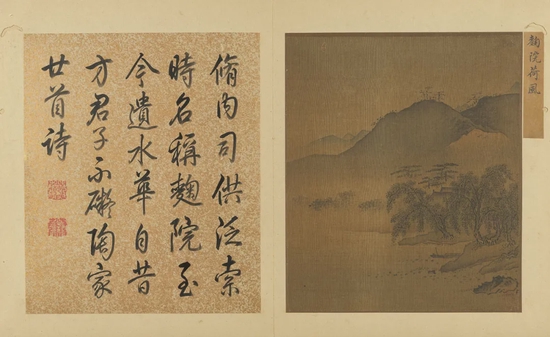 麴院荷風
脩內司供泛索
時名稱麴院至
今遺水華自昔
方君子不礙陶家
廿首詩